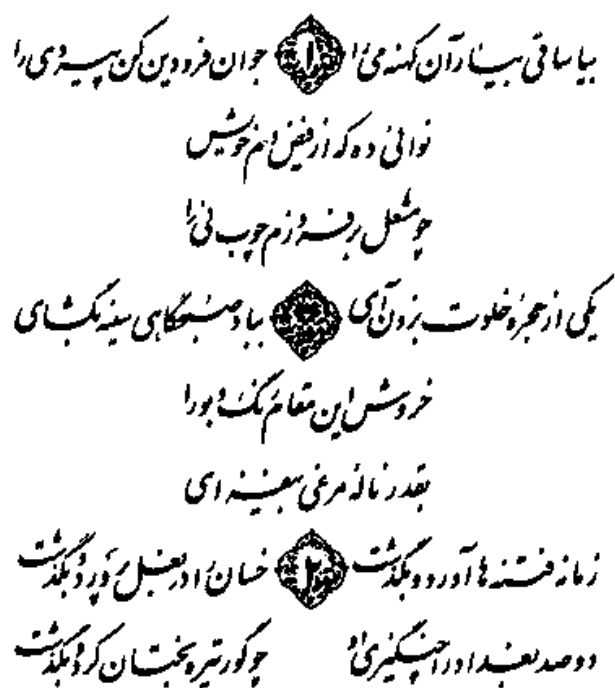 بیا ساقی بیار آن کهنه می را ۱ جوان فرودین کن پیر دی را
نوائی ده که از فیض دم خویش
چو مشعل بر فروزم چوب نی را
یکی از حجرهٔ خلوت برون آی بباد صبحگاهی سینه بگشای
خروش این مقام رنگ و بو را
بقدر نالهٔ مرغی بیفزای
زمانه فتنه ها آورد و بگذشت ۲ خسان را در بغل پرورد و بگذشت
دو صد بغداد را چنگیزی او چو گور تیره بختان کرد و بگذشت